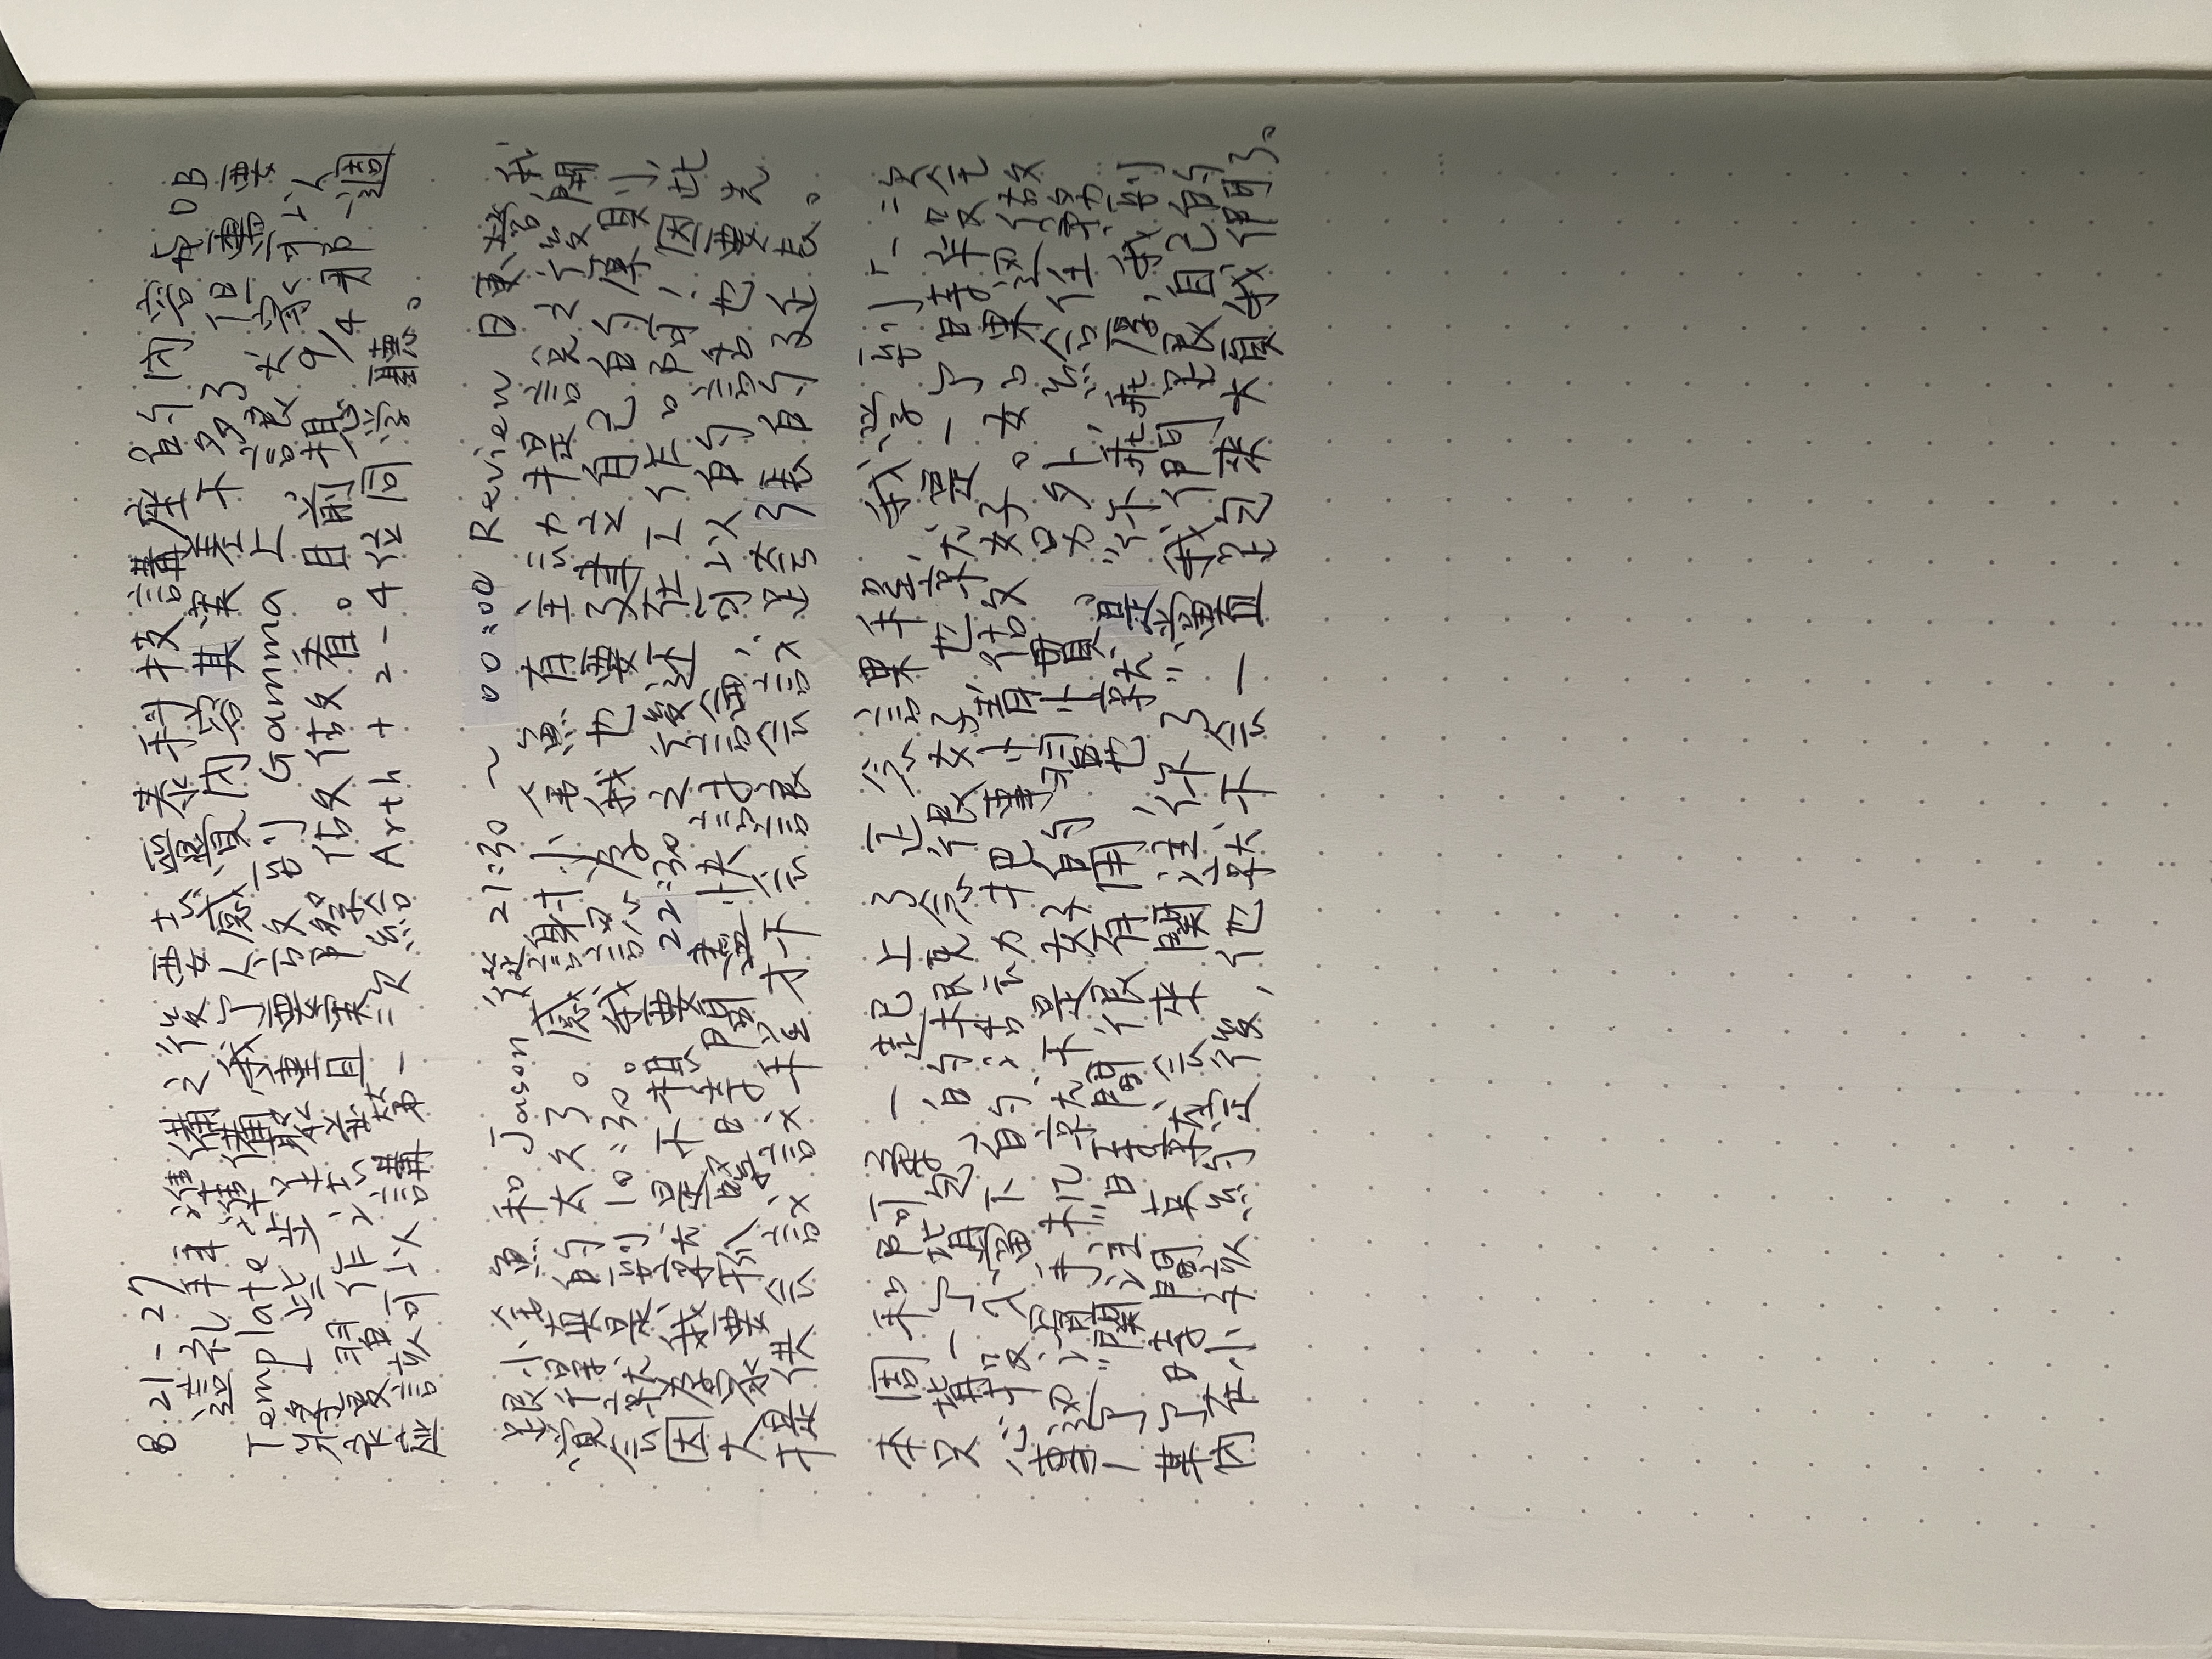 8.21-27
這礼拜準備之後要去晉泰科技講座的內容与DB
Template準備,我个人感覺內容其実差不多了,但需要
將一些步驟重要放到Gamma上,讓大家可以
去复習作法並且実際做做看。目前想9/4那一週
应該可以講第一次給Arth+2-4位同学聽。
跟小金魚和Jason從21:30~00:00 Review日東營,我
覚得真的太久了。感謝小金魚有主动提說之後開
会就是到10:30。我認为我也要建立自己的原則,
因为我就是不想要22:30之後还在工作啊!因此
大家要抓緊時間盡快討論,可以的話也要先
提供会議議程才不会讓会議誇張的延長。
本周和阿彙一起上了正念課程,我学到「一次
只背一个背包」的概念很好,也就是一个時段全
心投入當下的活动把事情做好。如果边做
事边滑手机就不是好的習慣。另外,給任務
一个"関注"時間很有用,也就是"你乖乖厚,我到
某个時間点就会來関注你了"當我們跟自己的
內在小孩約定後,他就不会一直跑來煩我們了。